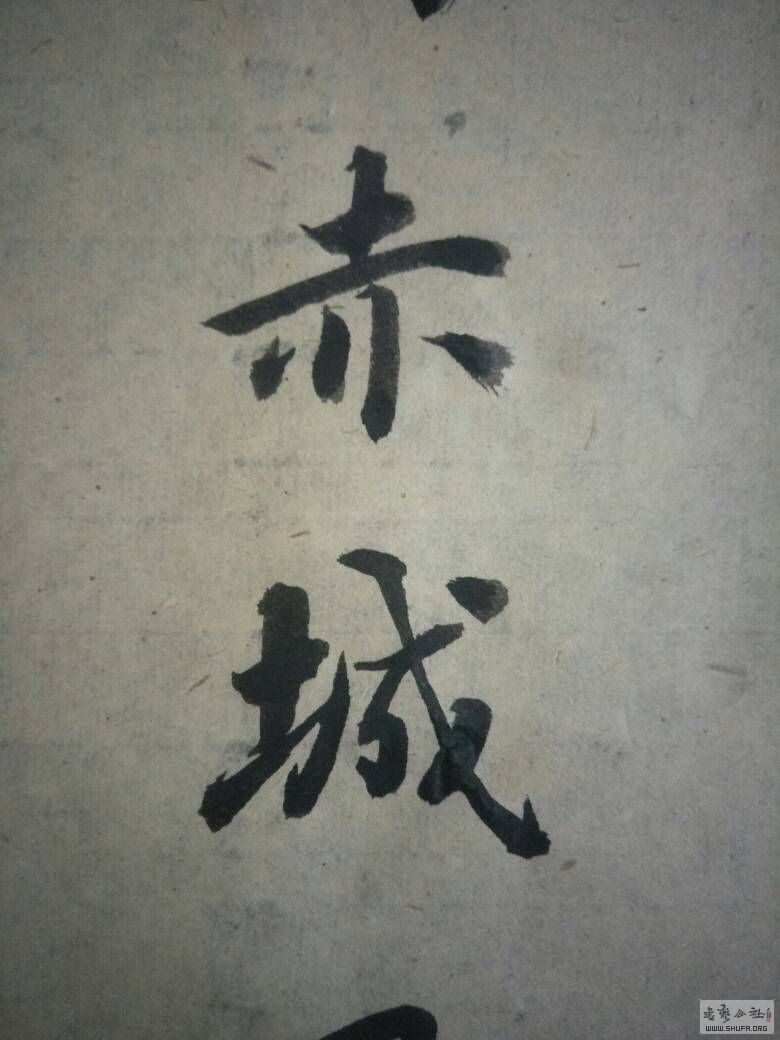 赤
城
书艺公社
WWW.SHUFA.ORG